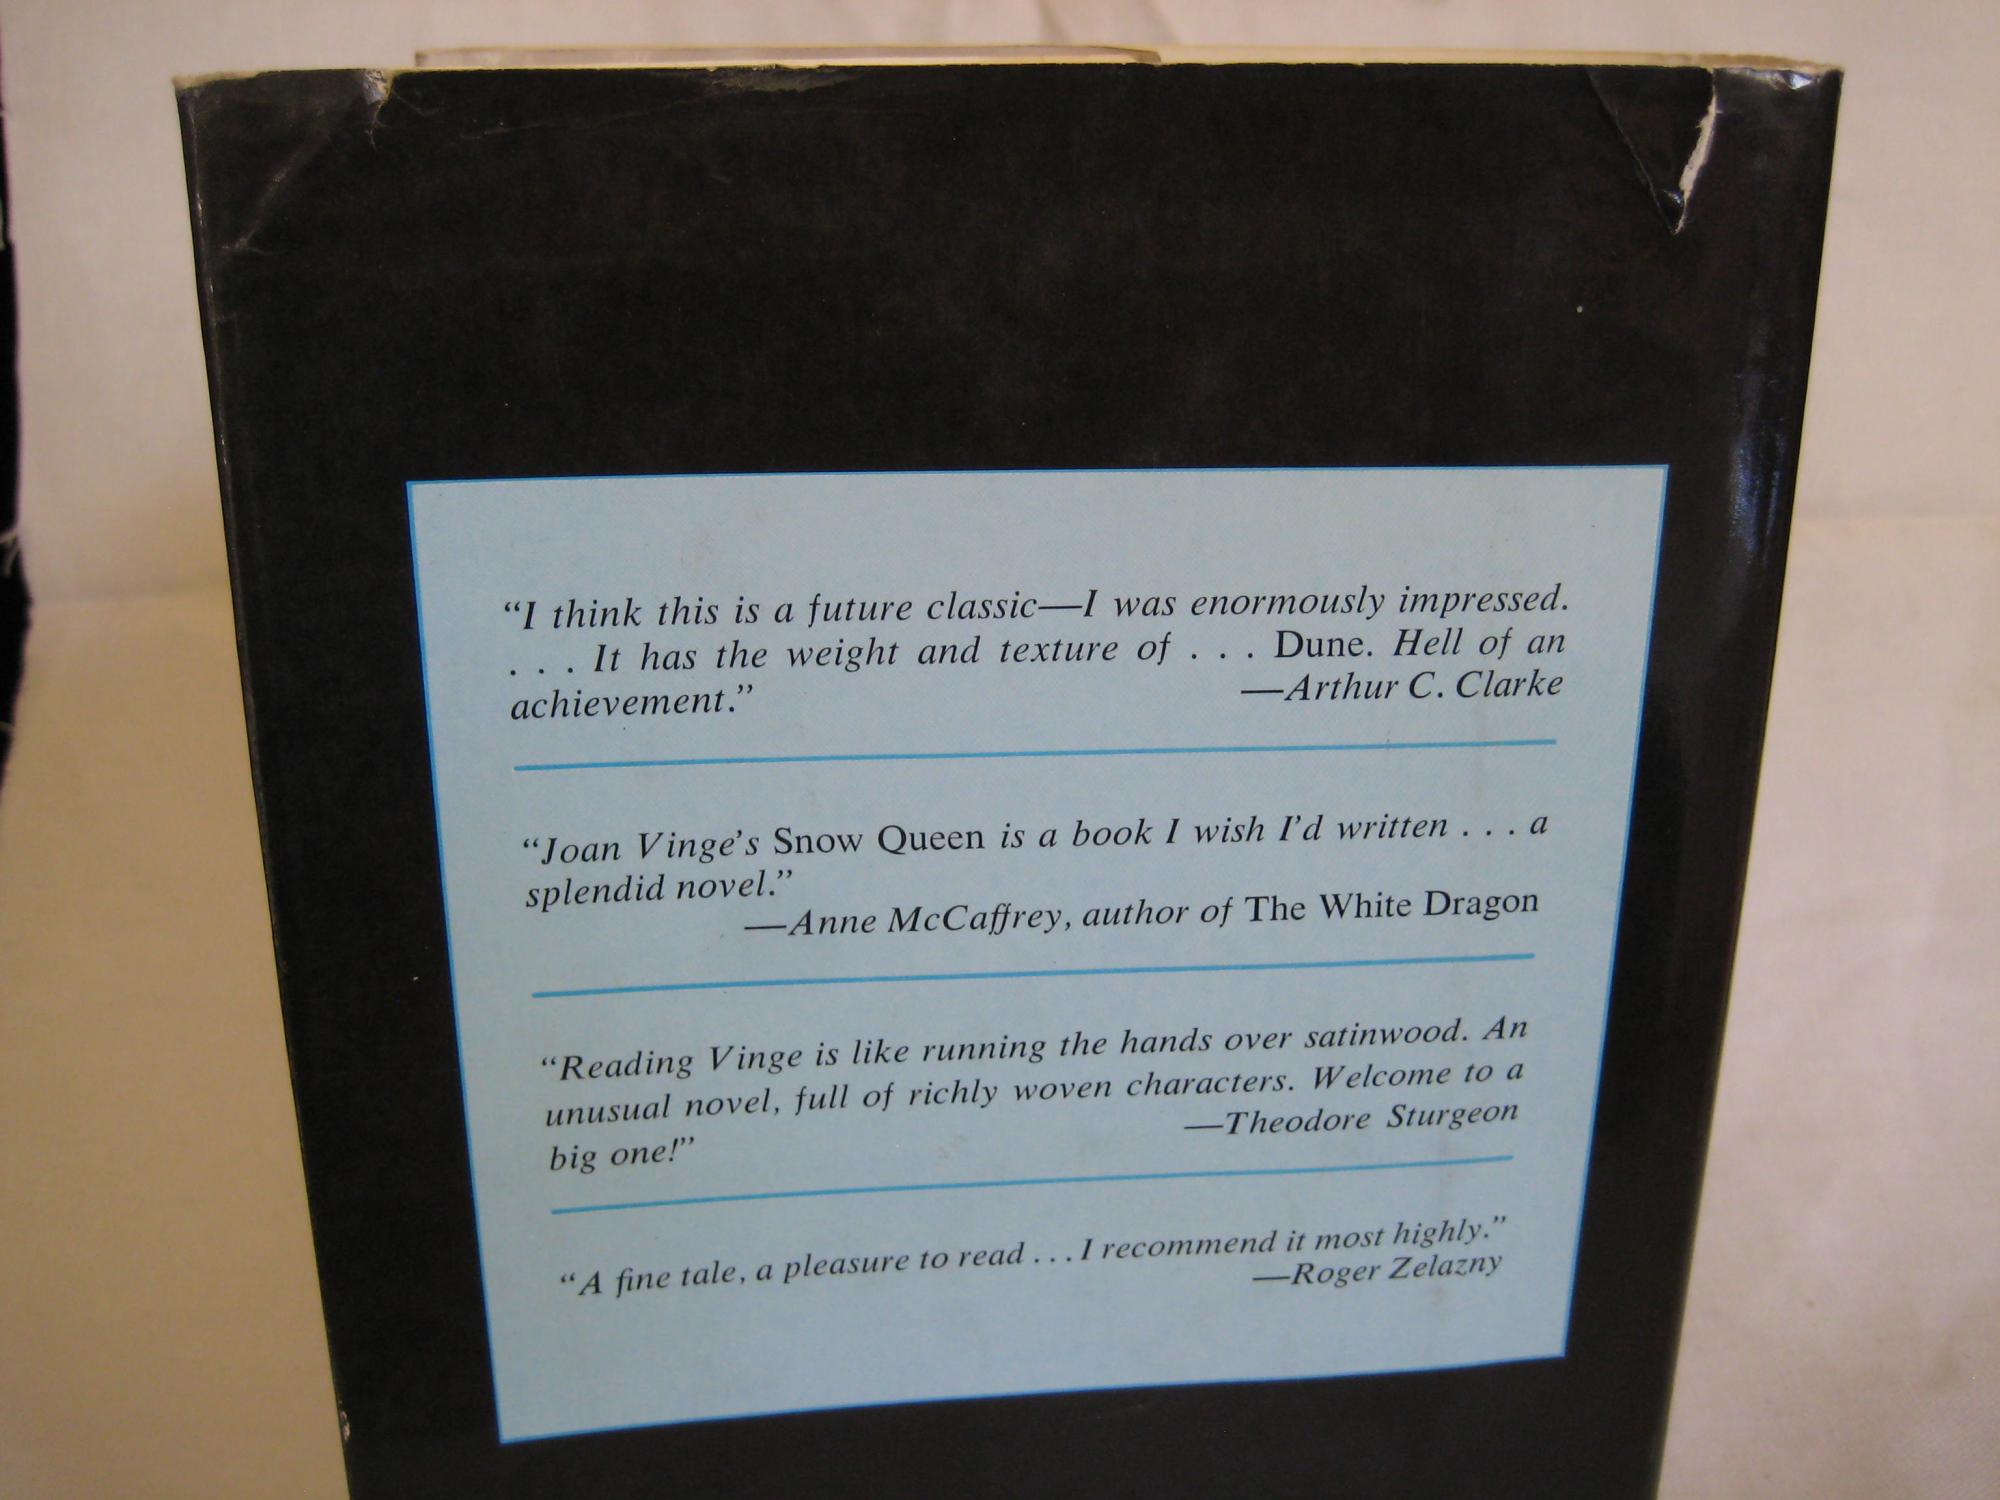 “I think this is a future classic—I was enormously impressed.
. . . It has the weight and texture of . . . Dune. Hell of an
achievement.” —Arthur C. Clarke
“Joan Vinge’s Snow Queen is a book I wish I’d written . . . a
splendid novel.”
—Anne McCaffrey, author of The White Dragon
“Reading Vinge is like running the hands over satinwood. An
unusual novel, full of richly woven characters. Welcome to a
big one!” —Theodore Sturgeon
“A fine tale, a pleasure to read . . . I recommend it most highly.”
—Roger Zelazny